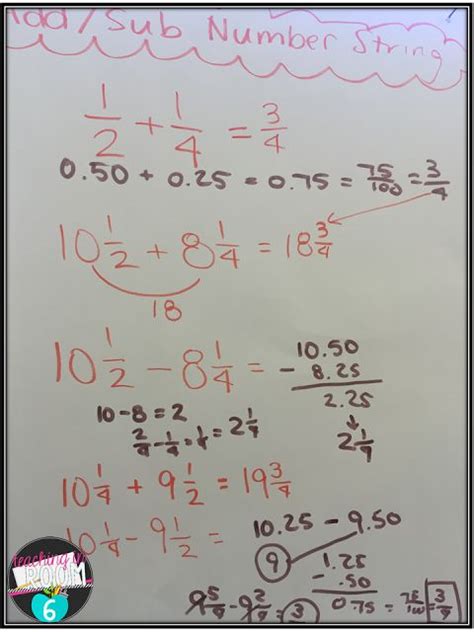 Add/Sub Number String
1/2 + 1/4 = 3/4
0.50 + 0.25 = 0.75 = 75/100 = 3/4
10 1/2 + 8 1/4 = 18 3/4
18
10 1/2 - 8 1/4 =
10.50
- 8.25
2.25
2 1/4
10-8=2
2/4 - 1/4 = 1/4 = 2 1/4
10 1/4 + 9 1/2 = 19 3/4
10 1/4 - 9 1/2 =
10.25 - 9.50
9
1.25
- .50
0.75 = 75/100 = 3/4
9 5/4 - 9 2/4 = 3
teaching in
ROOM
6